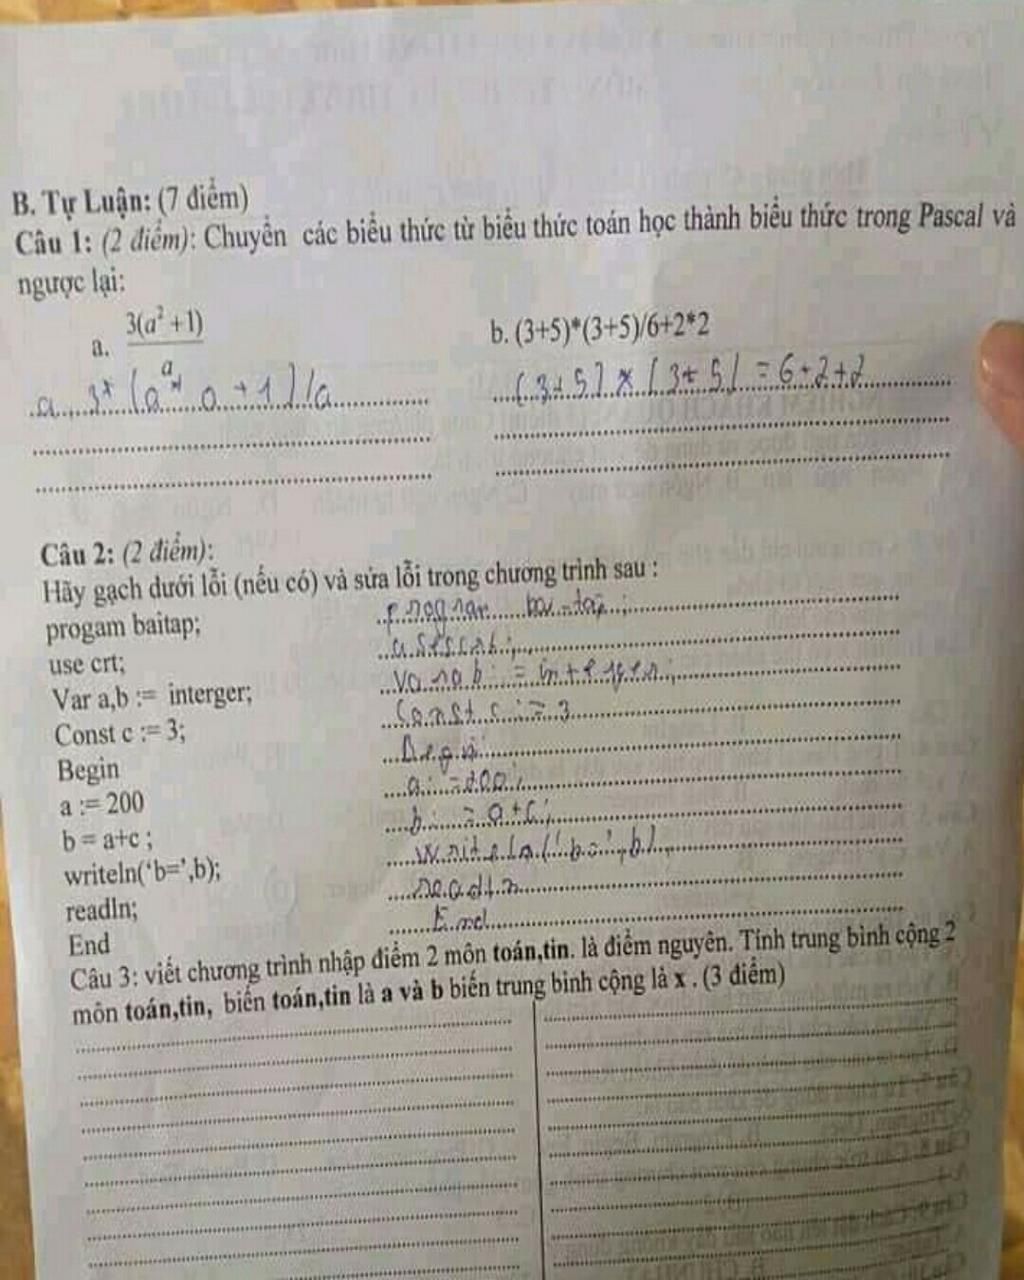 B. Tự Luận: (7 điểm)
Câu 1: (2 điểm): Chuyển các biểu thức từ biểu thức toán học thành biểu thức trong Pascal và
ngược lại:
a. 3(a² +1)
a
b. (3+5)*(3+5)/6+2*2
a, 3* (a * a + 1)/a
(3+5) x (3+5) = 6+2+2
Câu 2: (2 điểm):
Hãy gạch dưới lỗi (nếu có) và sửa lỗi trong chương trình sau :
progam baitap;
use crt;
Var a,b := interger;
Const c := 3;
Begin
a := 200
b = a+c ;
writeln('b=',b);
readln;
End
Const c := 3
Begin
a := 200;
b := a+c;
writeln('b=',b)
readln
End
Câu 3: viết chương trình nhập điểm 2 môn toán,tin. là điểm nguyên. Tính trung bình cộng 2
môn toán,tin, biến toán,tin là a và b biến trung bình cộng là x . (3 điểm)